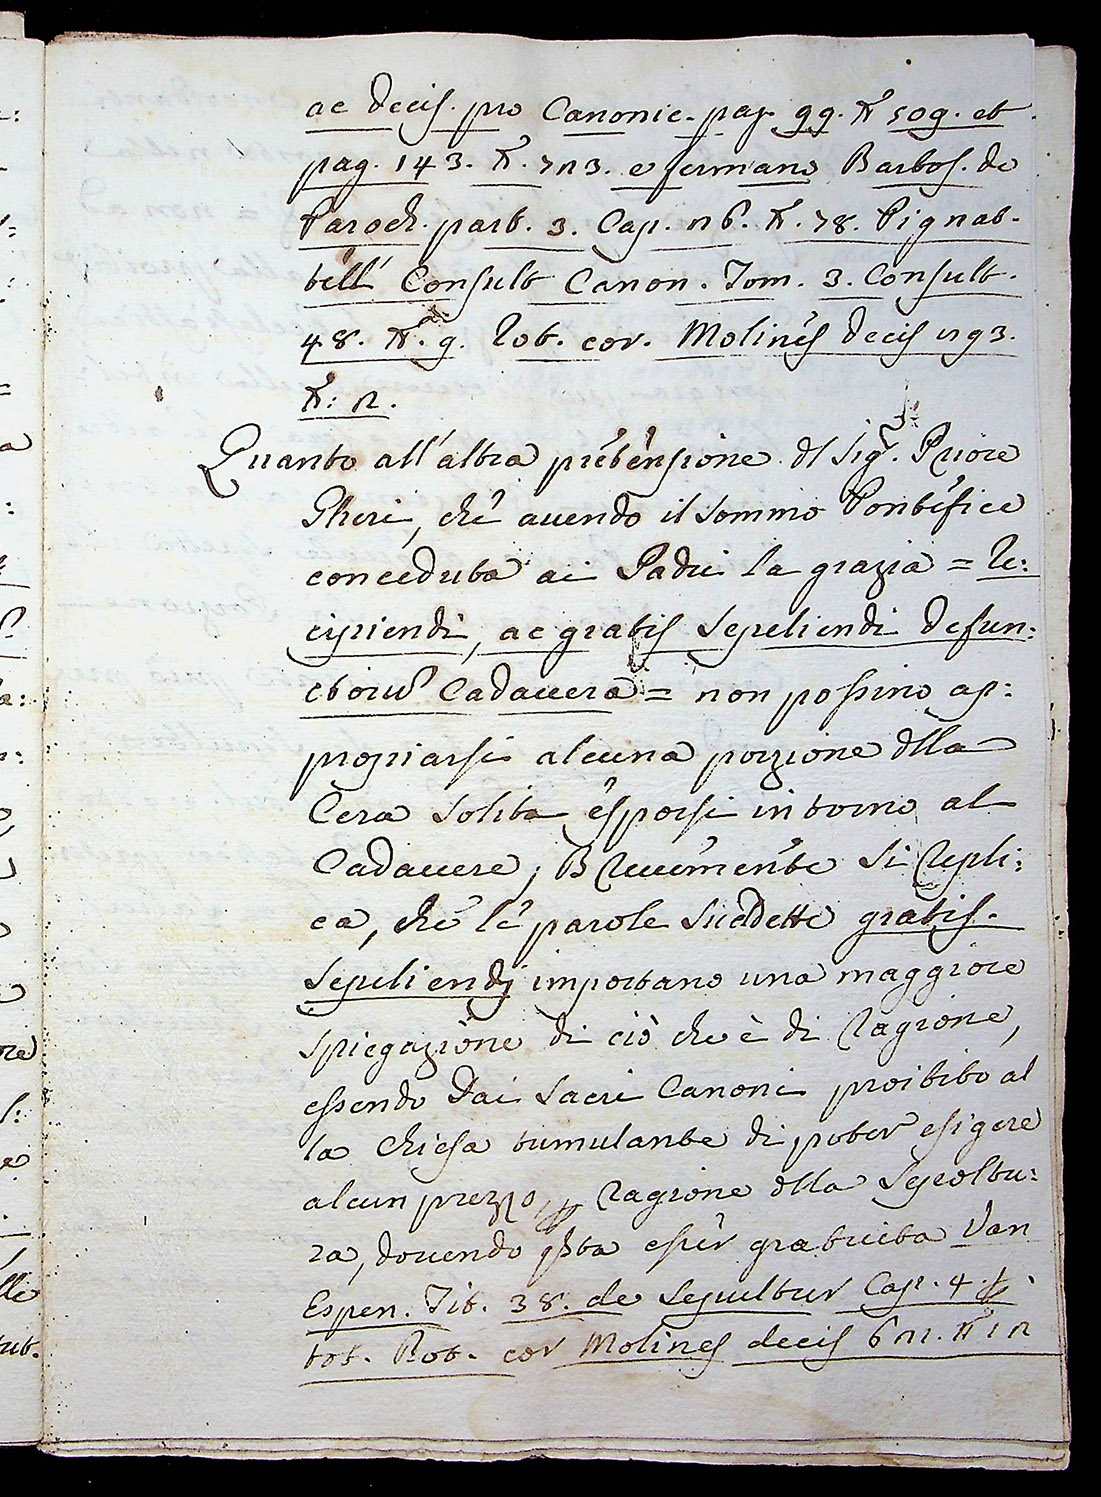 ac Decis. pro Canonic. pag. 99. N. 509. et
pag. 143. N. 723. e fermano Barbos. de
Paroch. part. 3. Cap. 26. N. 78. Pignat-
tell. Consult Canon. Tom. 3. Consult.
48. N. 9. Rot. cor. Molinés Decis 1293.
N: 2.
Quanto all'altra pretensione dl Sigr. Priore
Gheri, che avendo il Sommo Pontefice
conceduta ai Padri la grazia = Re:
cipiendi, ac gratis Sepeliendi Defun:
ctorum Cadavera = non possino ap:
propiarsi alcuna porzione dlla
Cera solita esporsi intorno al
Cadavere; Brevemente si repli:
ca, che le parole suddette gratis
Sepeliendi importano una maggiore
spiegazione di ciò che è di ragione,
essendo Dai Sacri Canoni proibito al
la Chiesa tumulante di poter esigere
alcun prezzo p ragione dlla Sepoltu:
ra, dovendo qsta esser gratuita Van
Espen. Tit. 38. de Sepultur Cap. 4.
tot. Rot. cor Molines decis 621. N 12